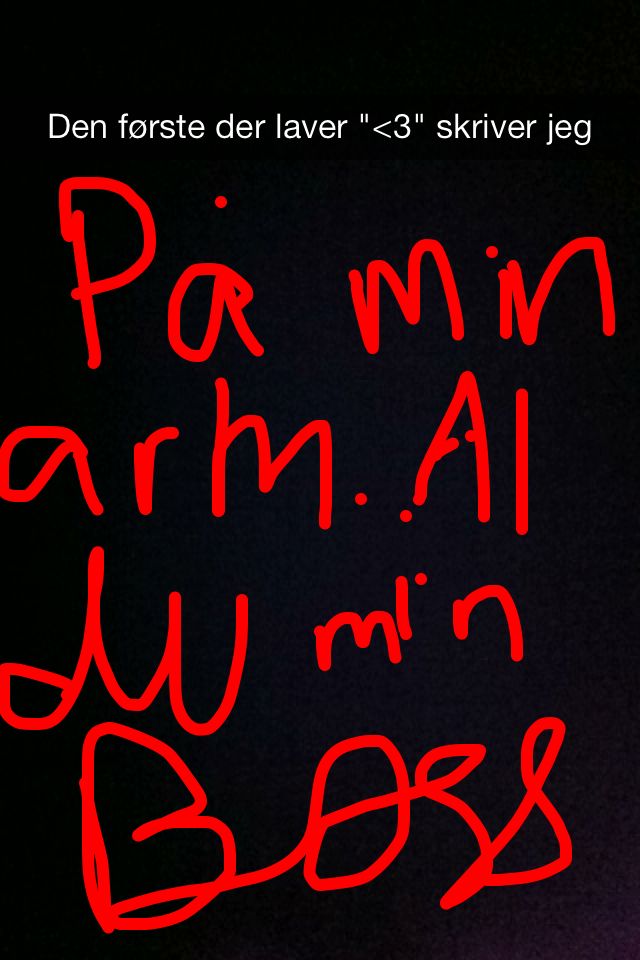 Den første der laver "<3" skriver jeg
På min
arm.. Al
du min
Boss